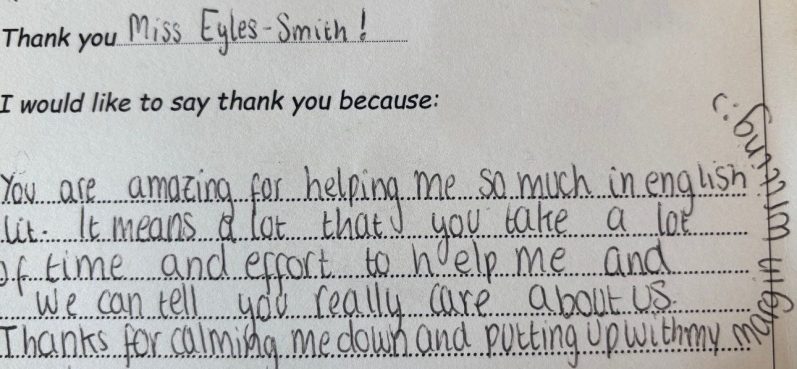 Thank you Miss Eyles-Smith!
I would like to say thank you because:
You are amazing for helping me so much in english
lit. It means a lot that you take a lot
of time and effort to help me and
We can tell you really care about us.
Thanks for calming me down and putting up with my
margin writing :)